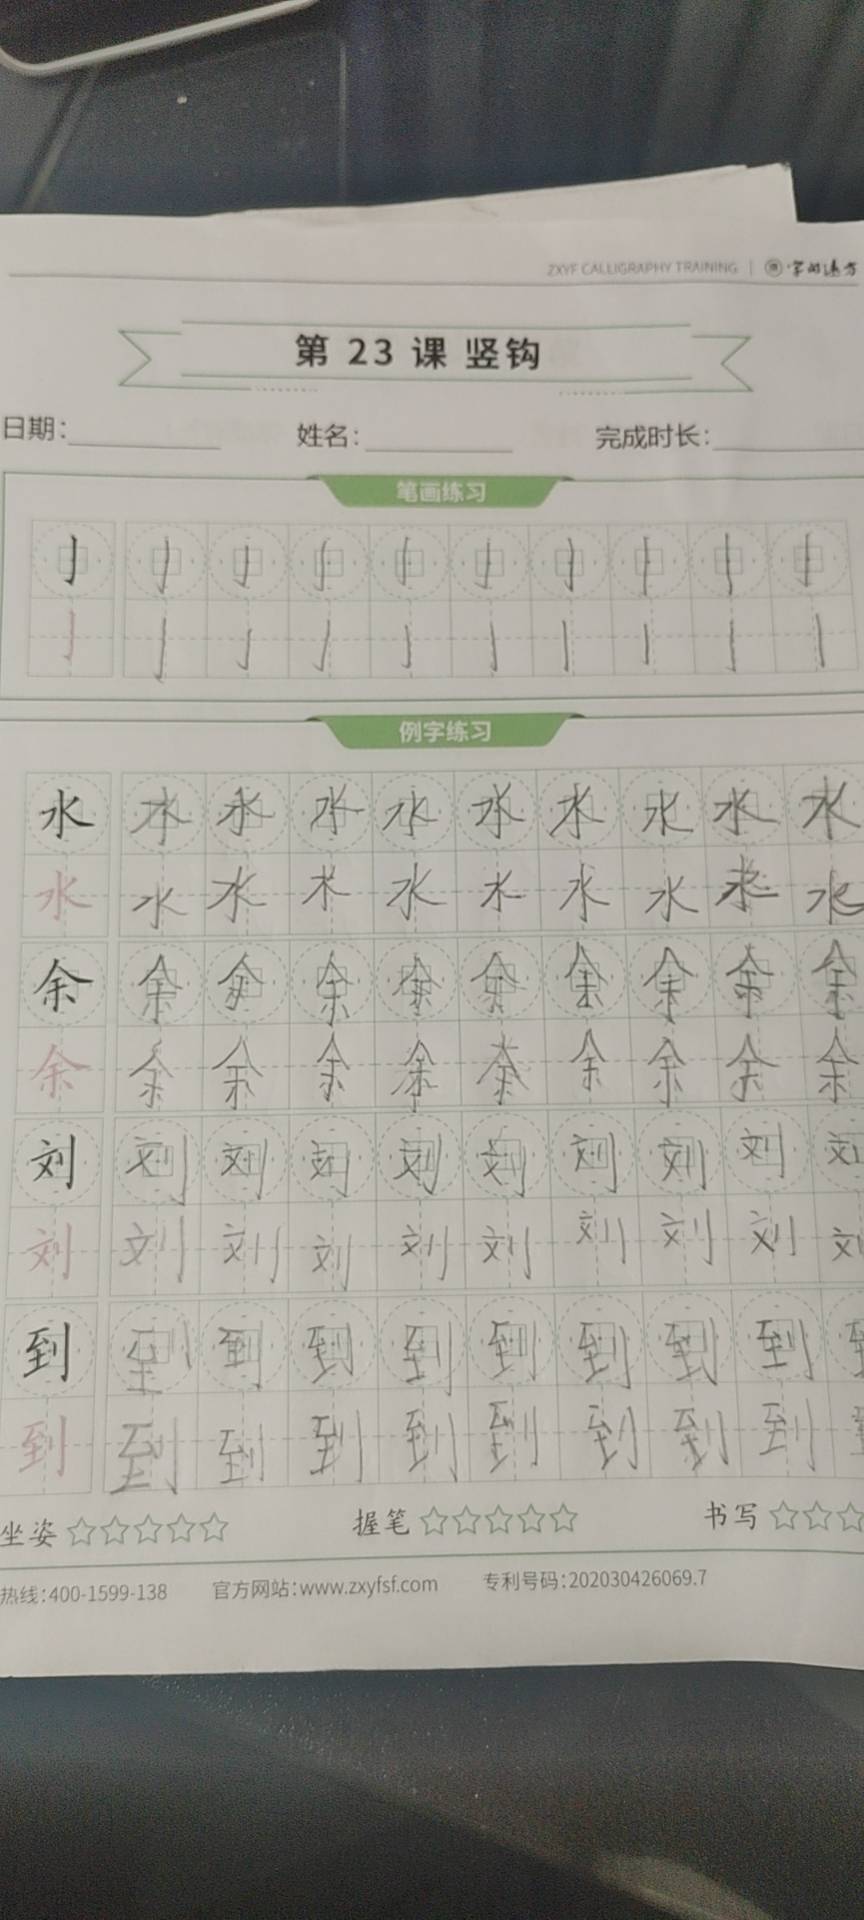 ZXYF CALLIGRAPHY TRAINING | 字如远方
第 23 课 竖钩
日期: 姓名: 完成时长:
笔画练习
例字练习
水 水 水 水 水 水 水 水 水 水
水 水 水 水 水 水 水 水 水 水
余 余 余 余 余 余 余 余 余 余
余 余 余 余 余 余 余 余 余 余
刘 刘 刘 刘 刘 刘 刘 刘 刘 刘
刘 刘 刘 刘 刘 刘 刘 刘 刘 刘
到 到 到 到 到 到 到 到 到
到 到 到 到 到 到 到 到 到
坐姿 握笔 书写
热线:400-1599-138 官方网站:www.zxyfsf.com 专利号码:202030426069.7